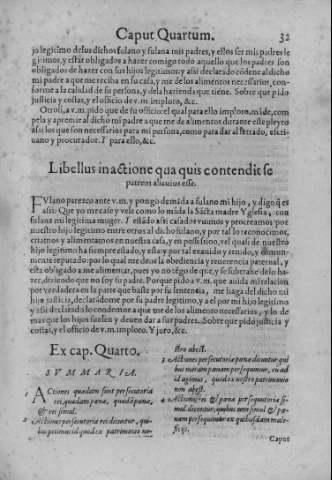 Caput Quartum. 32
jo legitimo de los dichos fulano y fulana mis padres, y ellos ser mis padres le
gitimos, y estar obligados a hazer comigo todo aquello que los padres son
obligados de hazer con sus hijos legitimos: y asi declarado cõdene al dicho
mi padre a que me reciba en su casa, y me de los alimentos necessarios, con-
forme a la calidad de su persona, y de la hazienda que tiene. Sobre que pido
justicia y costas, y el officio de v.m. imploro, &c.
Otrosi, a v.m. pido que de su officio: el qual para ello imploro, mãde, com
pela y apremie al dicho mi padre a que me de alimentos durante este pleyto
assi los que son necessarios para mi persona, como para dar al letrado, escri-
uano y procurador. Y para ello, &c.
Libellus in actione qua quis contendit se
patrem alicuius esse.
FVlano parezco ante v.m. y pongo demãda a fulano mi hijo, y digo q̃ es
assi: Que yo me case y vele como lo mãda la Sãcta madre Yglesia, con
fulana mi legitima muger. Y estãdo assi casados vuimos y procreamos por
nuestro hijo legitimo entre otros al dicho fulano, y por tal lo reconocimos,
criamos y alimentamos en nuestra casa, y en possessio, vel quasi de nuestro
hijo legitimo ha siempre estado, y esta: y por tal es auido y tenido, y comun-
mente reputado: por lo qual me deue la obediencia y reuerencia paternal, y
esta obligado a me alimentar, pues yo no tẽgo de que, y se substrahe de lo ha-
zer, diziendo que no soy su padre. Porque pido a v.m. que auida mi relacion
por verdadera en la parte que baste por su sentencia, me haga del dicho mi
hijo justicia, declarãdome por su padre legitimo, y a el por mi hijo legitimo
y assi declarado le condene a que me de los alimentos necessarios, y lo de
mas que los hijos suelen y deuen dar a sus padres. Sobre que pido justicia y
costas, y el officio de v.m. imploro. Y juro, &c.
Ex cap. Quarto.
SVMMARIA.
1 ACtiones quædam sunt persecutoriæ
rei, quædam pœnæ, quædã pœnæ,
& rei simul.
2 Actiones persecutoriæ rei dicũtur, qui-
bus petimus id quod ex patrimonio no-
stro abest.
3 Actiones persecutoriæ pœnæ dicuntur qui
bus meram pœnam persequimur, etiã ad
id agimus, quod ex nostro patrimonio
non abest.
4 Actiones rei & pœnæ persequutoriæ si-
mul dicuntur, quibus rem simul & pœ-
nam persequimur ex quibusdam male-
ficijs.
Caput